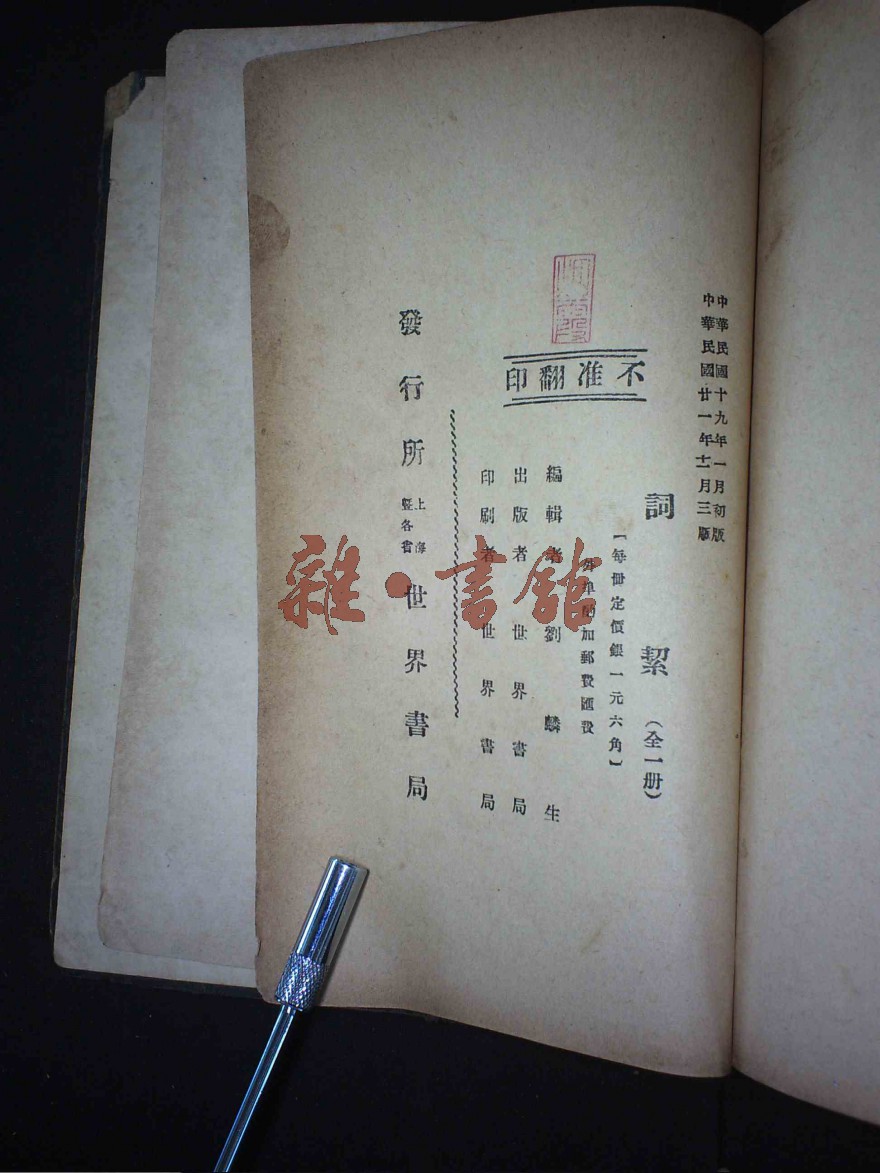 中華民國十九年一月初版
中華民國廿一年十二月三版
詞絜（全一册）
【每冊定價銀一元六角】
外埠酌加郵費匯費
不准翻印
編輯者 劉麟生
出版者 世界書局
印刷者 世界書局
發行所 上海 暨各省 世界書局
雜·書館